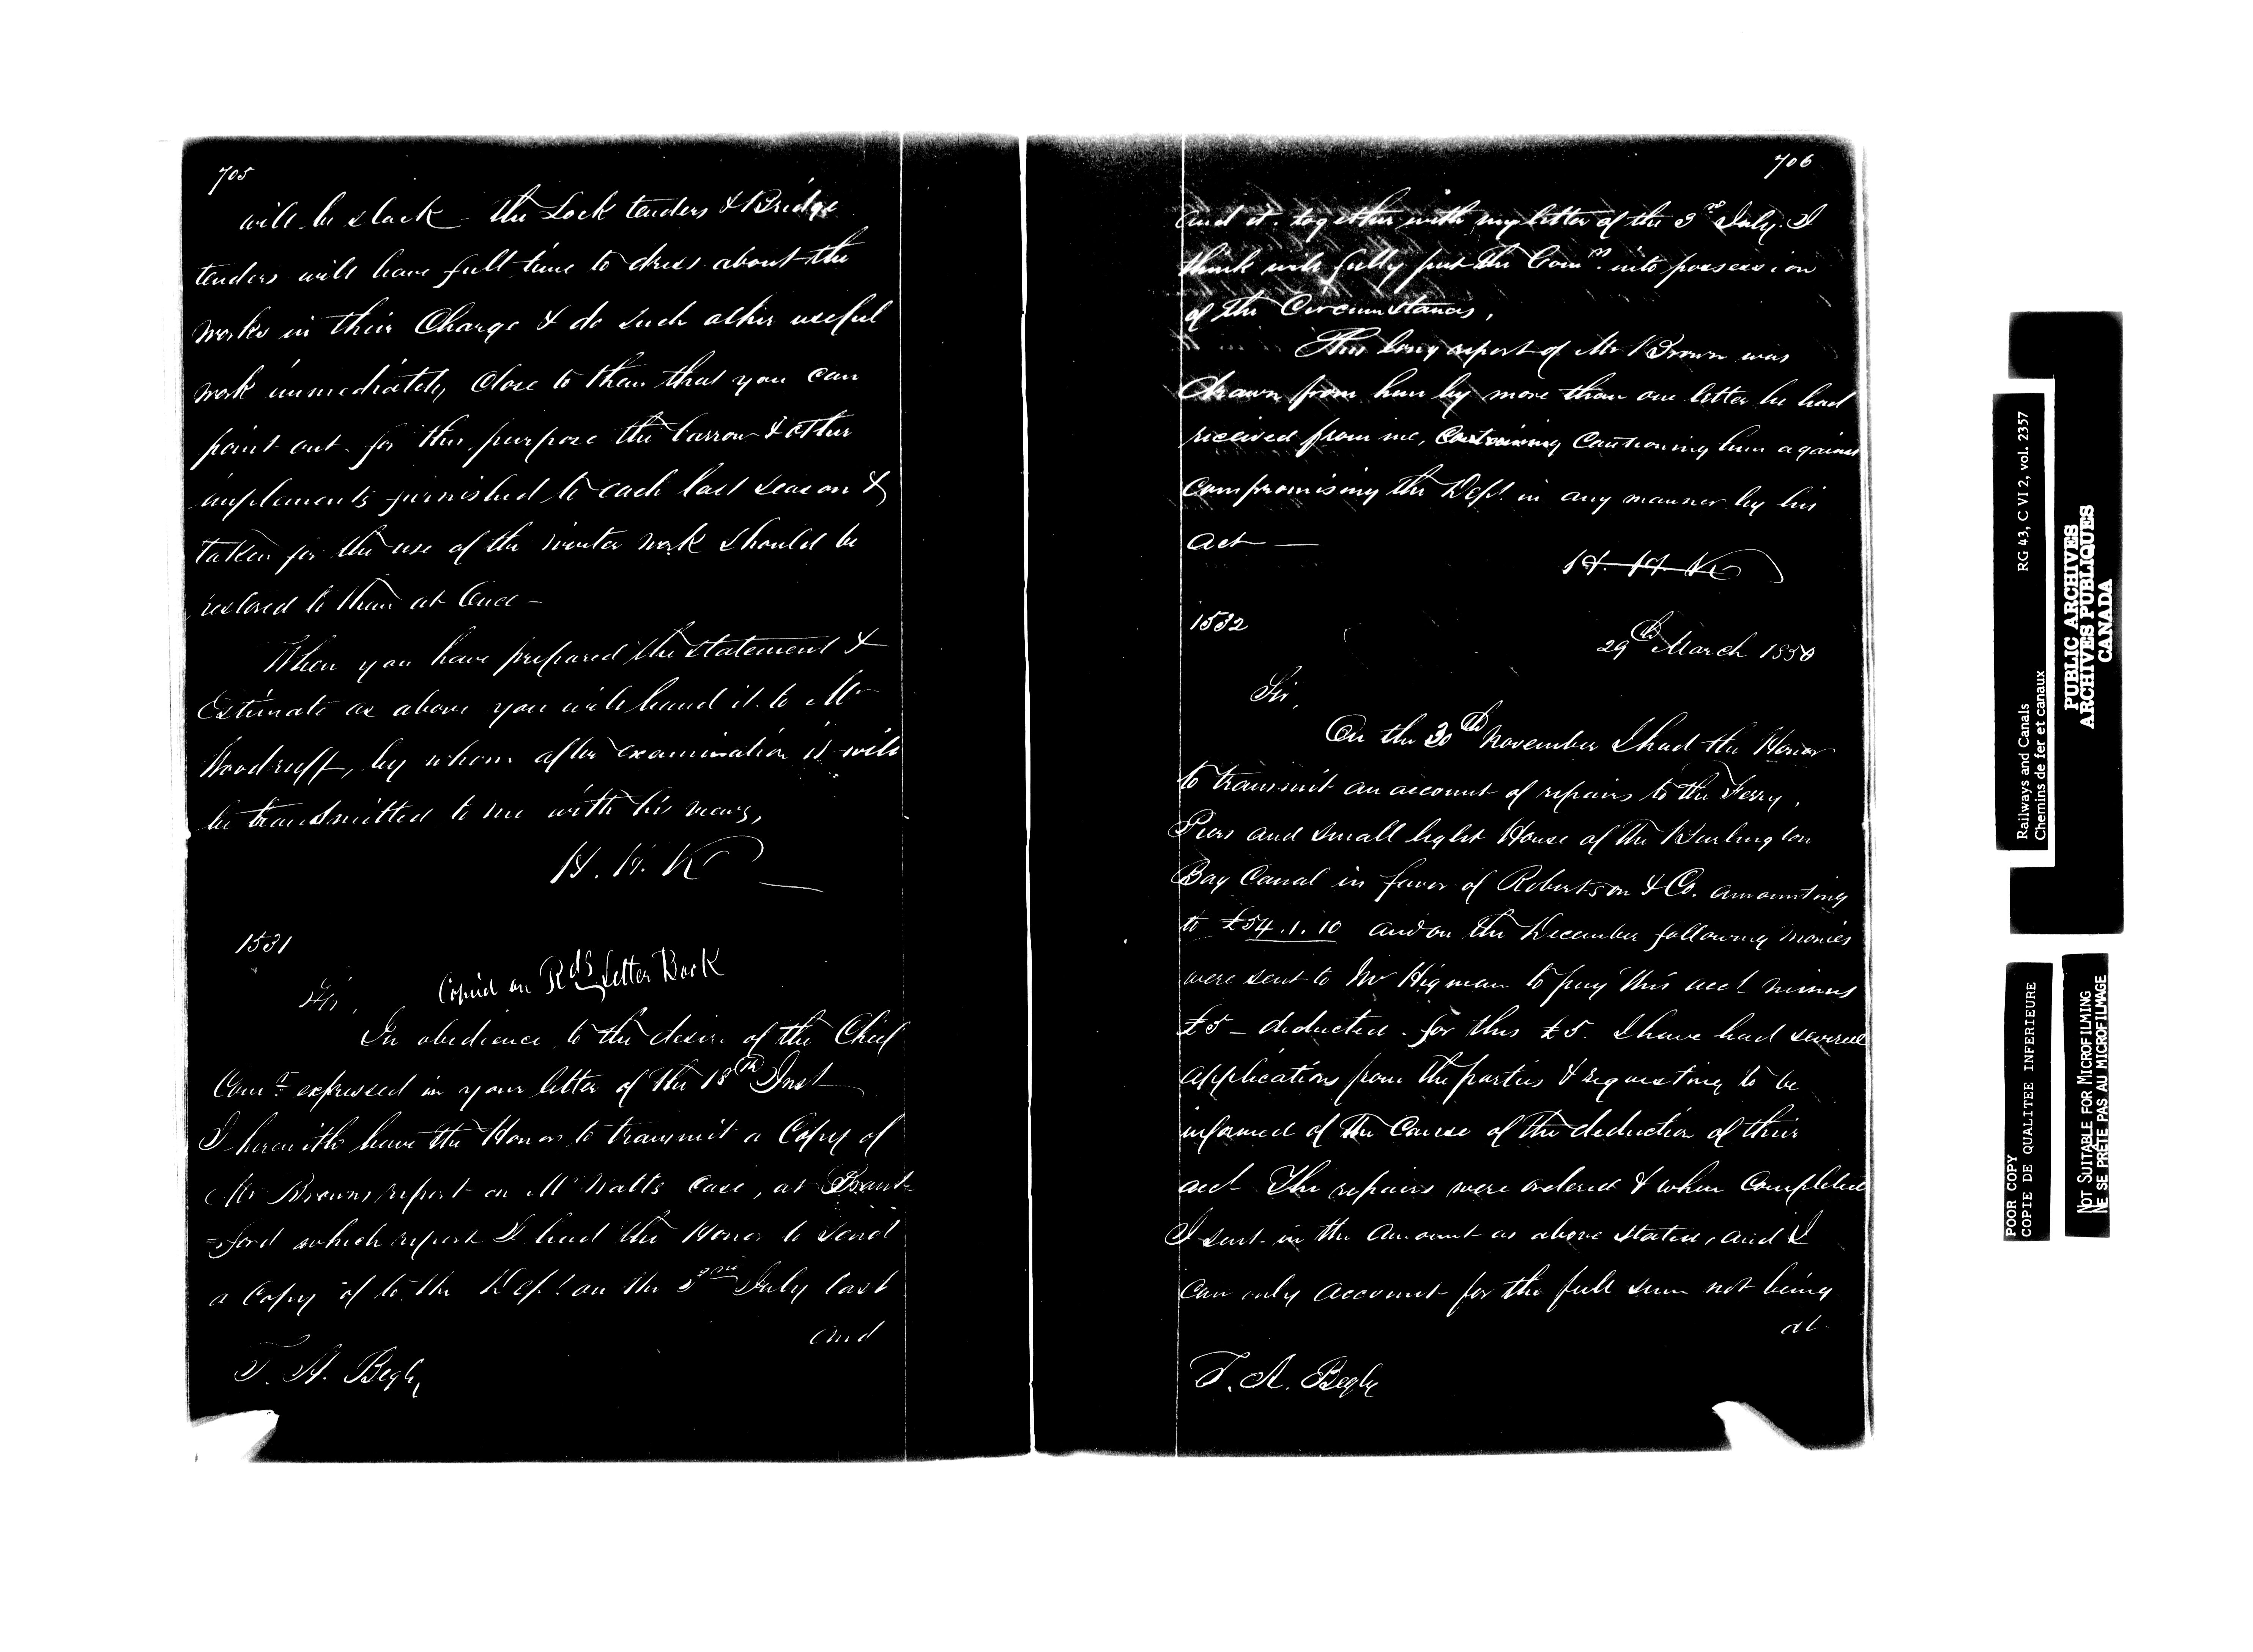 705
will be slack - the Lock tenders & Bridge
tenders will have full time to dress about the
works in their Charge & do such other useful
work immediately Close to them that you can
point out - for this purpose the barrow & other
implements furnished to each last season &
taken for the use of the winter work should be
restored to them at Once -
When you have prepared the statement &
Estimate as above you will hand it to Mr
Woodruff, by whom after examination it will
be transmitted to me with his views,
H. H. K
1531
Copied on Rds Letter Book
Sir,
In obedience to the desire of the Chief
Comr expressed in your letter of the 18th Inst
I herewith have the Honor to transmit a Copy of
Mr Browns report on Mr Watts Case, at Brant-
=ford which report I had the Honor to send
a Copy of to the Dept on the July last
and
T. A. Begly
706
and it together with my letter of the 3rd July I
think will fully put the Comrs into possession
of the Circumstances,
This long report of Mr Brown was
drawn from him by more than one letter he had
received from me, Cautioning him against
Compromising the Dept in any manner by his
act -
H. H. K
1532
29th March 1850
Sir,
On the 30th November I had the Honor
to transmit an account of repairs to the Ferry,
Piers and small light House of the Burlington
Bay Canal in favor of Robertson & Co. amounting
to £54.1.10 and on the December following monies
were sent to Mr Higman to pay this acct minus
£5 - deducted - for this £5. I have had several
applications from the parties & requesting to be
informed of the Cause of the deduction of their
acct The repairs were ordered & when Completed
I sent in the Amount as above stated, and I
can only account for the full sum not being
at
T. A. Begly
Railways and Canals RG 43, C VI 2, vol. 2357
Chemins de fer et canaux
PUBLIC ARCHIVES
ARCHIVES PUBLIQUES
CANADA
POOR COPY
COPIE DE QUALITEE INFERIEURE
NOT SUITABLE FOR MICROFILMING
NE SE PRÊTE PAS AU MICROFILMAGE